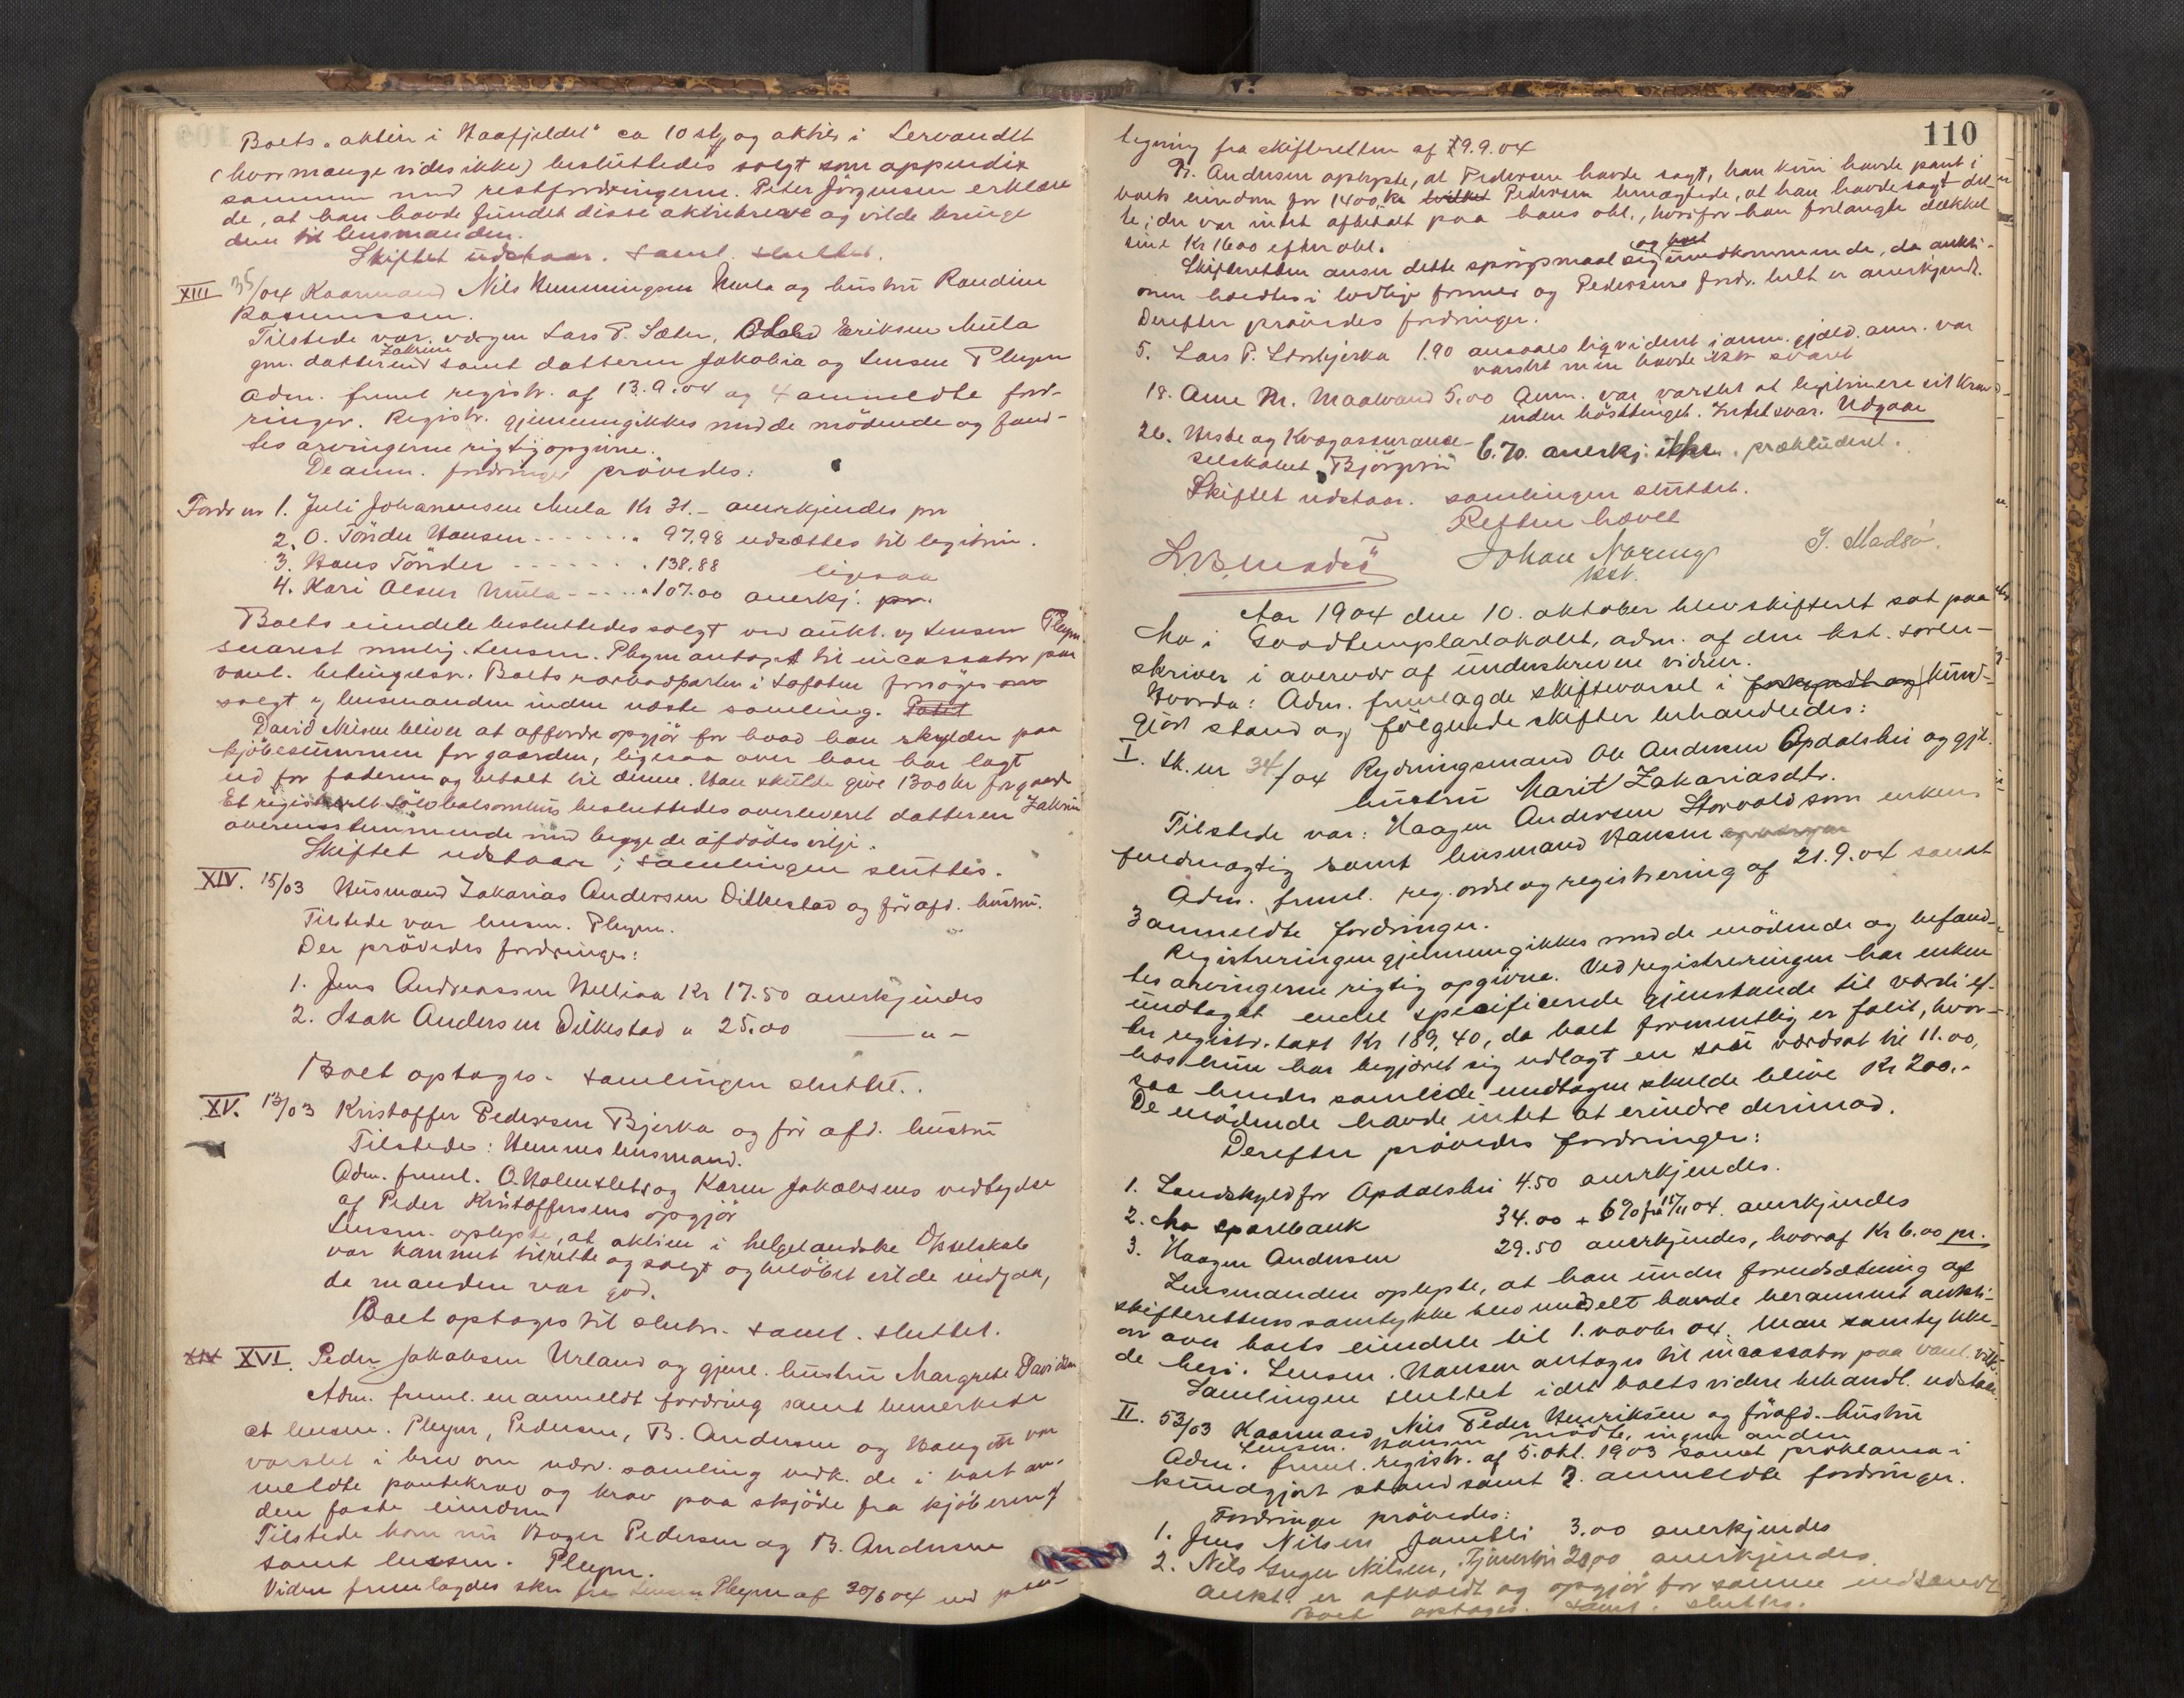 Boets "aktier i Haafjeldet" ca 10 stk og aktier i Lervandet
(hvormange vides ikke) besluttedes solgt som appendix
sammen med restfordringerne. Peter Jörgensen erklære
de, at han havde fundet disse aktiebreve og vilde bringe
dem til lensmanden.
Skiftet udstaar. Saml. sluttet.
XIII 35/04 Kaarmand Nils Hemmingsen Mula og hustru Raudine
Rasmussen.
Tilstede var: værgen Lars P. Sæter, Eriksen Mula
Zakrine
gm. datteren samt datteren Jakobia og Lensm Pleym
Adm. freml registr. af 13.9.04 og 4 anmeldte ford-
ringer. Registr. gjennemgikkes med de mödende og fand-
tes arvingerne rigtig opgivne.
De anm. fordringer prövedes:
Fordr nr 1. Juli Johannesen Mula Kr 31.- anerkjendes pr
2. O. Tönder Hansen - - - - - - " 97.98 udsættes til legitim.
3. Hans Tönder - - - - - - - " 138.88 ligesaa
4. Kari Olsen Mula - - - - - " 107.00 anerkj. pr.
Boets eiendele besluttedes solgt ved aukt. ved Lensm Pleym
snarest mulig. Lensm. Pleym antaget til incassator paa
vanl. betingelser. Boets part i Lofoten forsöges
solgt af lensmanden inden næste samling.
David Nilsen bliver at affordre opgjör for hvad han skylder paa
kjöbesummen for gaarden, ligesaa over han har lagt
ud for faderen og betalt til denne. Han skulde give 1300 kr for gaard.
Et registreret sölv besluttedes overleveret datteren Zakrine
overensstemmende med begge de afdödes vilje.
Skiftet udstaar; samlingen sluttes.
XIV. 15/03 Husmand Zakarias Andersen Dilkestad og för afd. hustru.
Tilstede var lensm. Pleym.
Der prövedes fordringer:
1. Jens Andreassen Kr 17.50 anerkjendes
2. Isak Andersen Dilkestad " 25.00 —"—
Boet optages. Samlingen sluttet.
XV. 13/03 Kristoffer Pedersen Bjerka og för afd. hustru
Tilstede: Hemnes lensmand.
Adm. freml. O. og Karen Jakobsens vedtagelse
af Peder Kristoffersens opgjör
Lensm. oplyste, at aktien i helgelandske Dpselskab
var kommet tilrette og solgt og belöbet vilde indgaa,
da manden var god.
Boet optages til slutn. Saml. sluttet.
XIV XVI. Peder Jakobsen Urland og gjenl. hustru Margrete Davidsen
Adm. freml. en anmeldt fordring samt bemerkede
at lensm. Pleym, Pedersen, B. Andersen og Haugen var
varslet i brev om nærv. samling vedk. de i boet an-
meldte pantekrav og krav paa skjöde fra kjöberen af
den faste eiendom
Tilstede kom nu Pedersen og B. Andersen
samt lensm. Pleym.
Viden fremlagdes skr. fra Lensm Pleym af 30/6 04 med
110
legning fra skifteretten af 29.9.04
B. Andersen oplyste, at Pedersen havde sagt, han kun havde pant i
boets eiendom for 1400 kr hvilket Pedersen benægtede, at han havde sagt det-
te; der var intet afbetalt paa hans obl., hvorfor han forlangte dækket
sine Kr 1600 efter obl.
og boet
Skifteretten anser dette spörgsmaal sig uvedkommende, da aukti-
onen holdtes i lovlige former og Pedersens fordr. helt er anerkjendt.
Derefter prövedes fordringer.
5. Lars P. 1.90 ansaaes liqvideret i anm. gjæld. anm. var
varslet men havde ikke svaret
18. Anne M. Maalvand 5.00 Anm. var varslet at legitimere sit krav
inden hösttinget. Intet svar. Udgaar
26. Heste og Kvægassurance-
selskabet "Bjørgvin" 6.70. anerkj. ikke. prækluderet.
Skiftet udstaar. samlingen sluttet.
Retten hævet
Johan Nærung
kst.
J. Madsø
Aar 1904 den 10. oktober blev skifteret sat paa
Mo i Goodtemplarlokalet, adm. af den kst. soren-
skriver i overvær af underskrevne vidner.
Hvorda: Adm. fremlagde skiftevarsel i forkyndt og kund-
gjort stand og fölgende skifter behandledes:
I. Sk. nr 34/04 Rydningsmand Ole Andersen Opdalslei og gjl.
hustru Marit Zakariasdtr.
Tilstede var: Haagen Andersen Storvold som enkens
fuldmægtig samt lensmand Hansen
Adm. freml. reg. ordre og registrering af 21.9.04 samt
3 anmeldte fordringer.
Registreringen gjennemgikkes med de mödende og befand-
tes arvingerne rigtig opgivne. Ved registreringen har enken
undtaget endel specificerede gjenstande til værdi ef-
ter registr. takst Kr 189,40, da boet formentlig er falit, hvor-
hos hun har begjæret sig udlagt en værdsat til 11.00,
saa hendes samlede undtagne skulde blive Kr 200.-
De mödende havde intet at erindre derimod.
Derefter prövedes fordringer:
1. Landskyld for Opdalslei 4.50 anerkjendes.
2. Mo sparebank 34.00 + 6% fra 15/11 04. anerkjendes
3. Haagen Andersen 29.50 anerkjendes, hvoraf Kr 6.00 pr.
Lensmanden oplyste, at han under forudsætning af
skifterettens samtykke blev meddelt havde berammet aukti-
on over boets eiendele til 1. novbr 04. Man samtykke-
de heri. Lensm. Hansen antages til incassator paa vanl. vilk.
Samlingen sluttet idet boets videre behandl. udstaar
II. 53/03 Kaarmand Nils Peder Henriksen og förafd. hustru
Lensm. Hansen mödte, ingen anden
Adm. freml. registr. af 5. okt. 1903 samt proklama i
kundgjort stand samt 2. anmeldte fordringer.
Fordringer prövedes:
1. Jens Nilsen Jamtli 3.00 anerkjendes
2. Nils Inger Nilsen, anerkjendes.
aukt. er afholdt og opgjör for samme indsendt
Boet optages. Saml. sluttes.